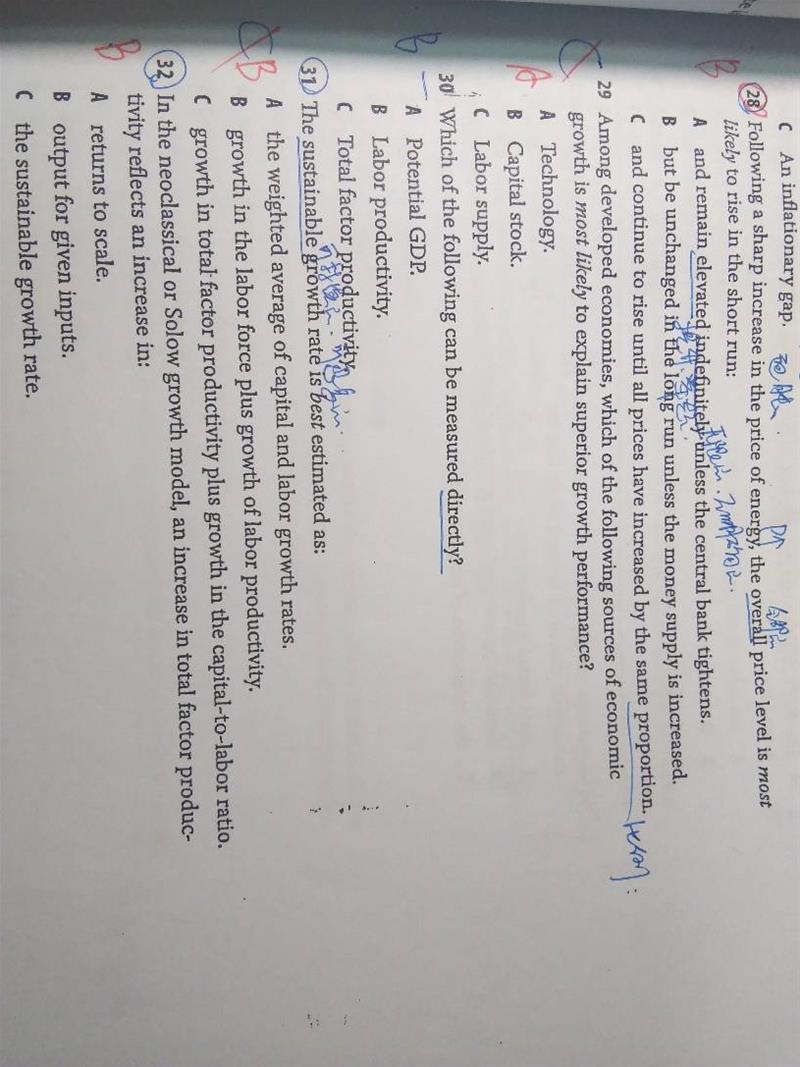 C An inflationary gap.
B
28 Following a sharp increase in the price of energy, the overall price level is most
likely to rise in the short run:
A and remain elevated indefinitely unless the central bank tightens.
B but be unchanged in the long run unless the money supply is increased.
C and continue to rise until all prices have increased by the same proportion.
29 Among developed economies, which of the following sources of economic
growth is most likely to explain superior growth performance?
A Technology.
A
B Capital stock.
C Labor supply.
B
30 Which of the following can be measured directly?
A Potential GDP.
B Labor productivity.
C Total factor productivity.
31 The sustainable growth rate is best estimated as:
B
A the weighted average of capital and labor growth rates.
B growth in the labor force plus growth of labor productivity.
C growth in total factor productivity plus growth in the capital-to-labor ratio.
32 In the neoclassical or Solow growth model, an increase in total factor produc-
B
tivity reflects an increase in:
A returns to scale.
B output for given inputs.
C the sustainable growth rate.